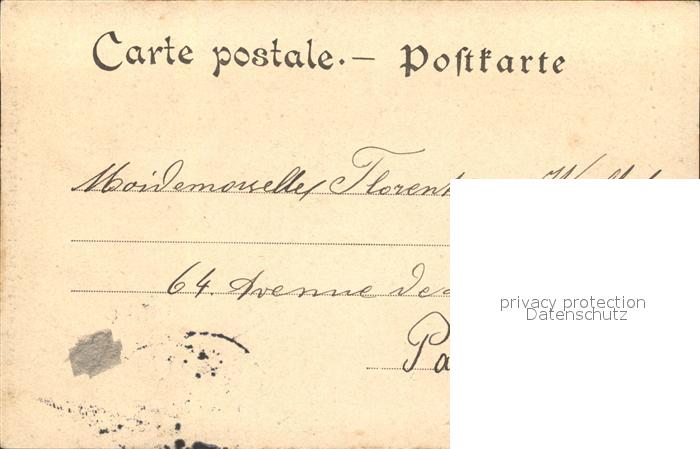 Carte postale.— Poſtkarte
Mademoiselle
64. Avenue de
privacy protection
Datenschutz